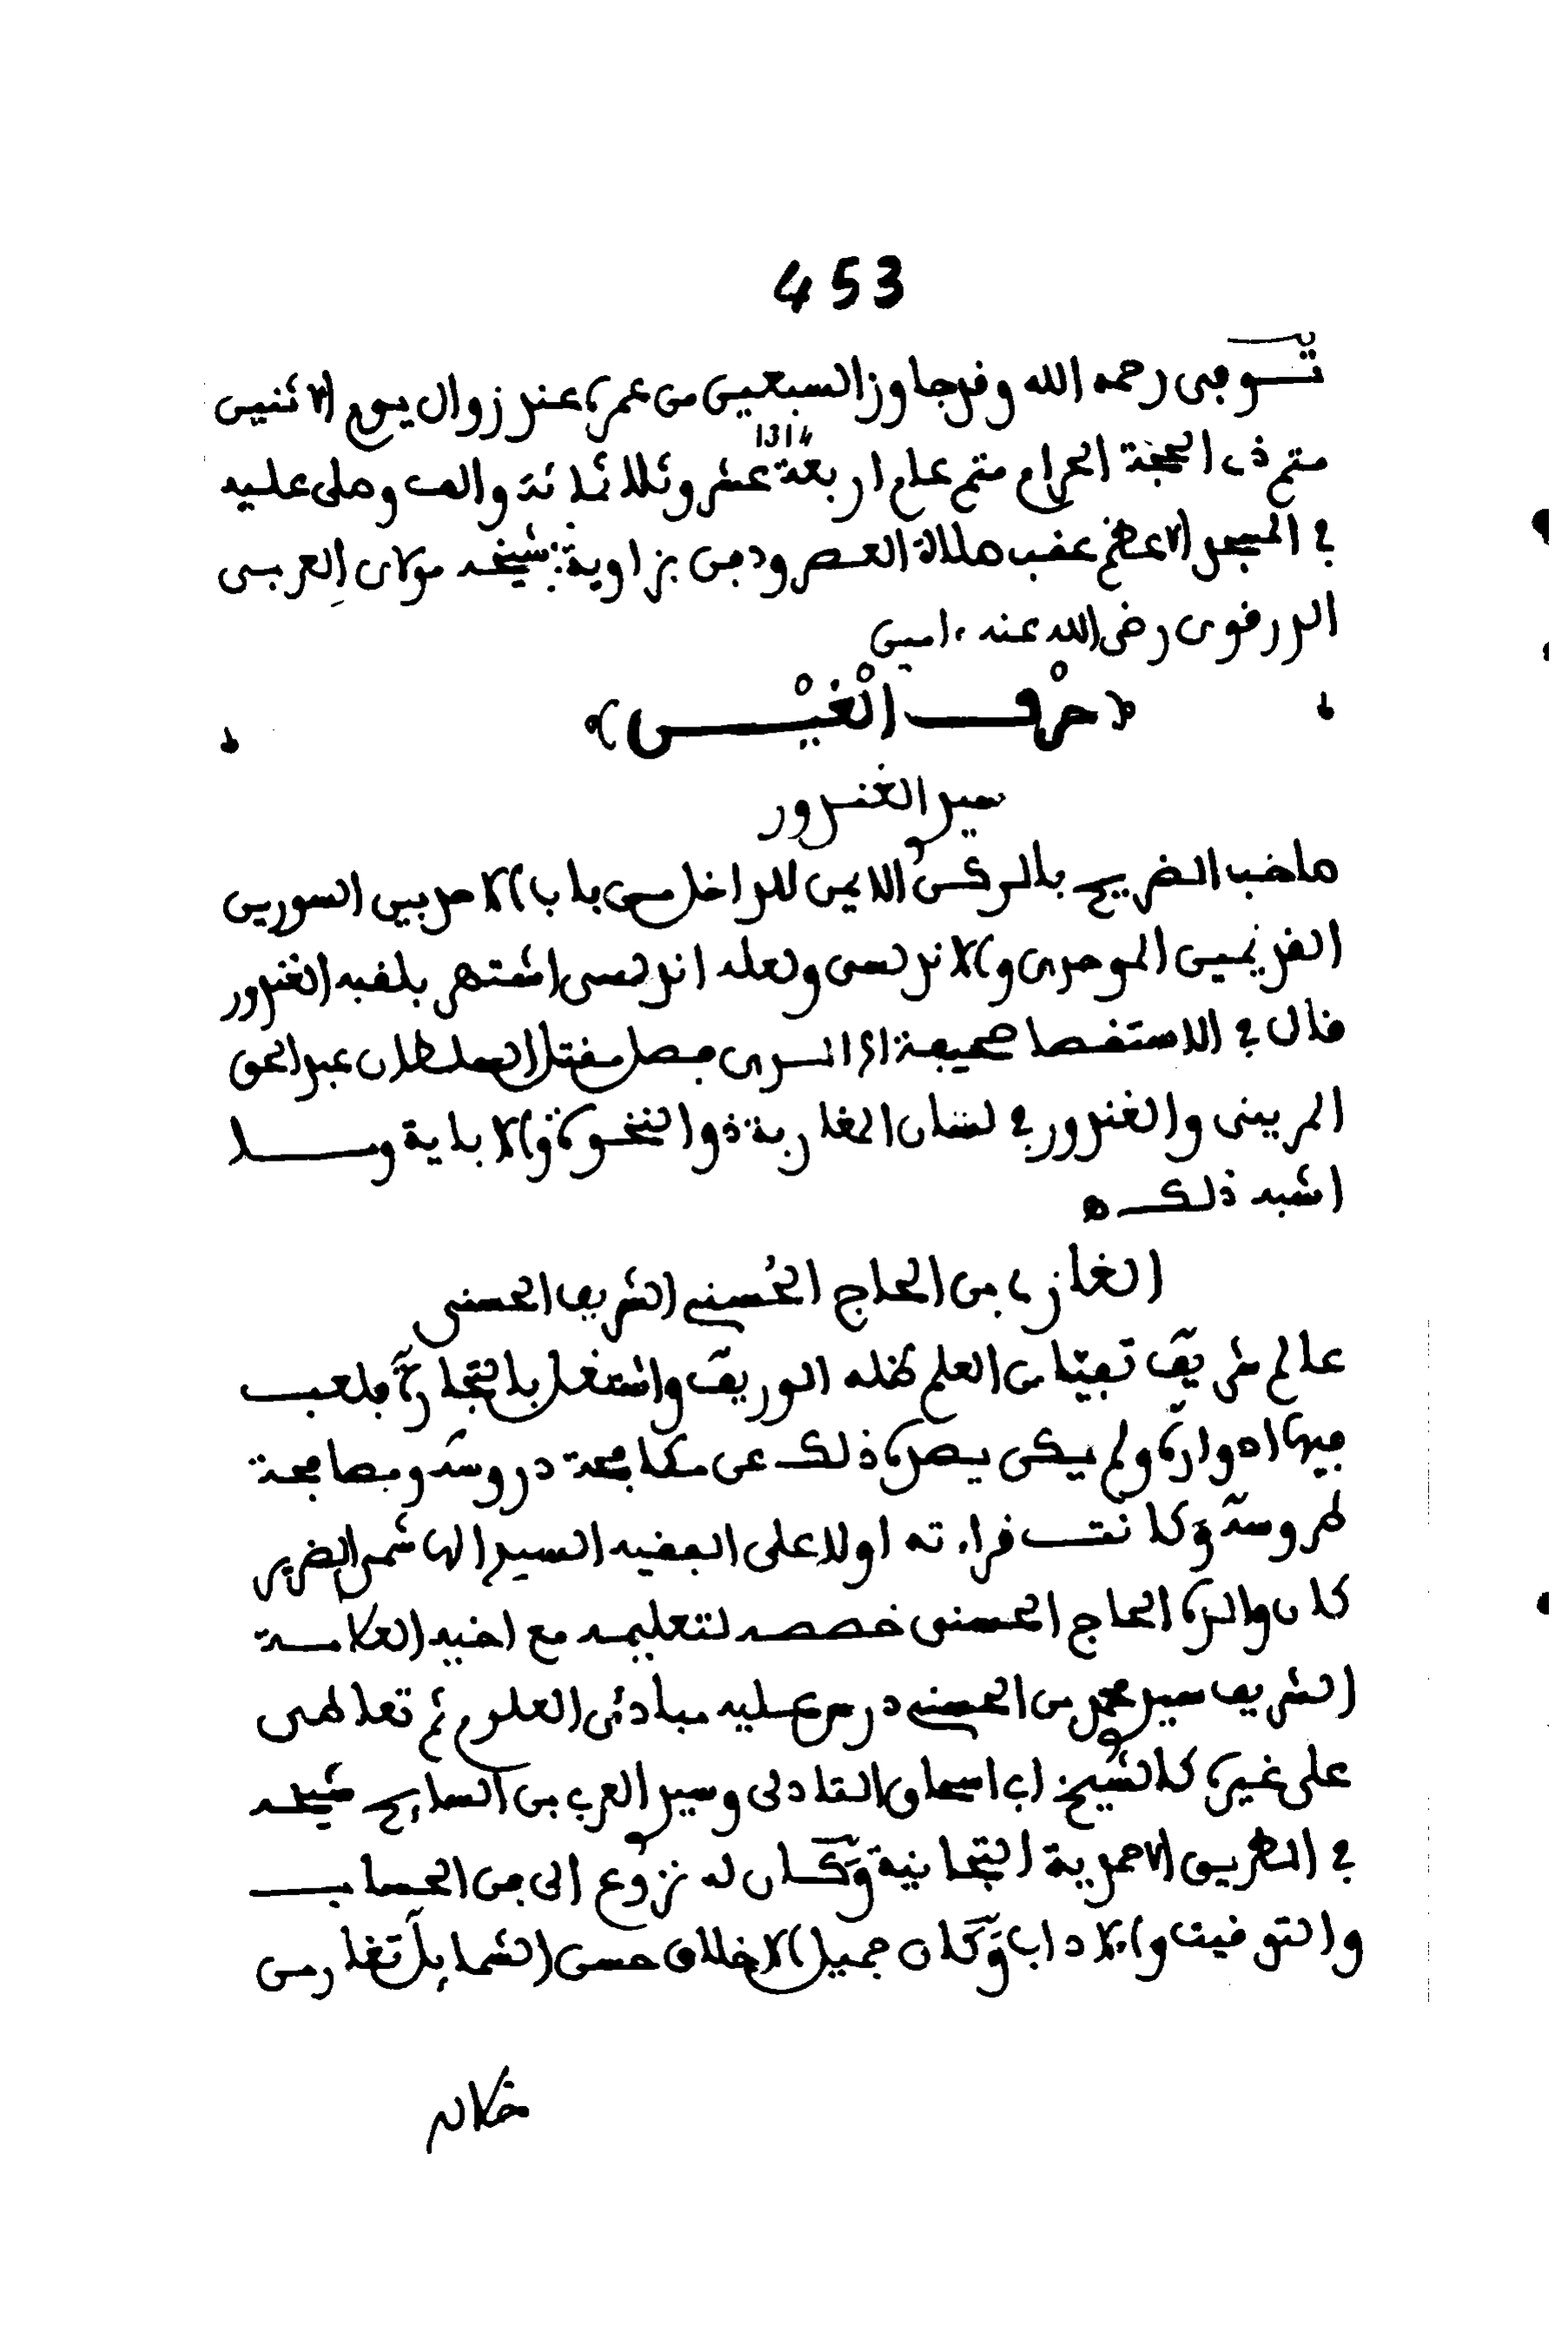 453
توفى رحمه الله وقد جاوز السبعين من عمره عند زوال يوم الاثنين
متم ذى الحجة الحرام متم عام اربعة عشر وثلاثمائة والف وصلى عليه
1314
فى المسجد الاعظم عقب صلاة العصر ودفن بزاوية شيخه مولاى العربى
الدرقوى رضى الله عنه ءامين
(حرْف الْغيْــن)
سيد الغندور
صاحب الضريح بالركن الايمن للداخل من باب الاحد بين السورين
القديمين الموحدى والاندلسى ولعله اندلسى اشتهر بلقبه الغندور
قال فى الاستقصا صحيفة اثر فصل مقتل السلطان عبد الحق
المرينى والغندور فى لسان المغاربة ذو النخوة والاباية وما
اشبه ذلك ه
الغازى بن الحاج الحُسنى الشريف الحسنى
عالم شريف تفيّا من العلم ظله الوريف واشتغل بالتجارة فلعب
فيها ادواره ولم يكن يصده ذلك عن مكافحة دروسه ومصافحة
طروسه وكانت قراءته اولا على الفقيه السيد الهاشمى الضرير
كان والده الحاج الحسنى خصصه لتعليمه مع اخيه العلامة
الشريف سيد محمد بن الحسنى درس عليه مبادئى العلوم ثم تعاطى
على غيره كالشيخ ابى اسحاق التادلى وسيد العربى بن السايح شيخه
فى الطريق الاحمدية التجانية وكان له نزوع الى فن الحساب
والتوقيت والاداب وكان جميل الاخلاق حسن الشمايل تغارمن
خلاله